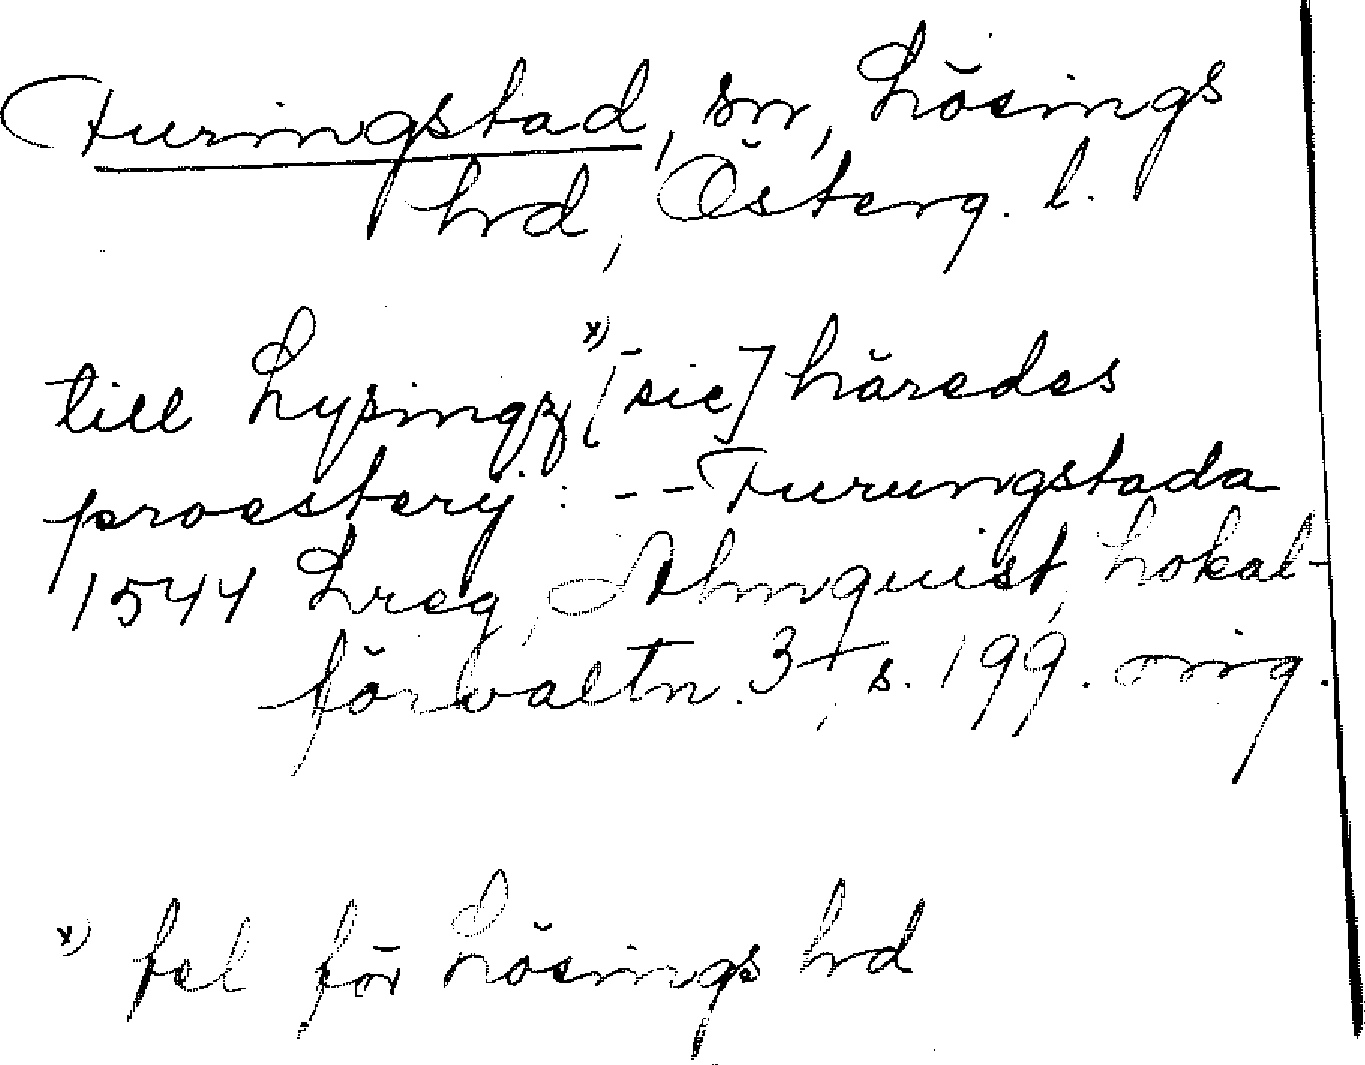 Furingstad, sn, Lösings
hrd, Österg. l.
till Lysingz x) [sic] häredes
proestery: -- Furungstada
1544 Lreg, Almquist, Lokal-
förvaltn. 3+, s. 199. mg.
x) fel för Lösings hrd